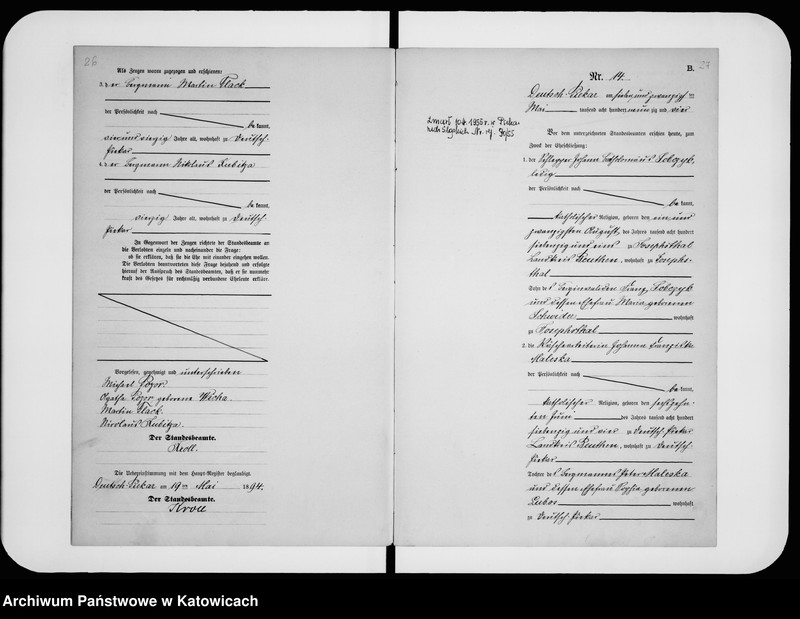 26
Als Zeugen waren zugezogen und erschienen:
3. der Bergmann Martin Flack
der Persönlichkeit nach
bekannt,
vierundvierzig Jahre alt, wohnhaft zu Deutsch-
Piekar
4. der Bergmann Nikolaus Kubitza
der Persönlichkeit nach
bekannt,
vierzig Jahre alt, wohnhaft zu Deutsch-
Piekar
In Gegenwart der Zeugen richtete der Standesbeamte an
die Verlobten einzeln und nacheinander die Frage:
ob sie erklären, daß sie die Ehe mit einander eingehen wollen.
Die Verlobten beantworteten diese Frage bejahend und erfolgte
hierauf der Ausspruch des Standesbeamten, daß er sie nunmehr
kraft des Gesetzes für rechtmäßig verbundene Eheleute erkläre.
Vorgelesen, genehmigt und unterschrieben
Michael
Agatha geborene Wicha
Martin Flack.
Nicolaus Kubitza.
Der Standesbeamte.
Kroll.
Die Uebereinstimmung mit dem Haupt-Register beglaubigt.
Deutsch Piekar am 19ten Mai 1894.
Der Standesbeamte.
Kroll
27
B.
Nr. 14.
Deutsch-Piekar am siebenundzwanzigsten
Mai tausend acht hundert neunzig und vier
zmarł 1955 r. w Pieka-
rach Śląskich Nr.
Vor dem unterzeichneten Standesbeamten erschien heute, zum
Zweck der Eheschließung:
1. der Schlepper Johann Bartholomäus Sobczyk,
ledig
der Persönlichkeit nach
bekannt,
katholischer Religion, geboren den ein und
zwanzigsten August des Jahres tausend acht hundert
siebenzig und eins zu Josephsthal
Landkreis Beuthen, wohnhaft zu Josephs-
thal
Sohn des Berginvaliden Franz Sobczyk
und dessen Ehefrau Maria geborenen
Schwider wohnhaft
zu Josephsthal
2. die Wäschearbeiterin Johanna Franziska
Maleska
der Persönlichkeit nach
bekannt,
katholischer Religion, geboren den sechszehn-
ten Juni des Jahres tausend acht hundert
siebenzig und vier zu Deutsch-Piekar
Landkreis Beuthen, wohnhaft zu Deutsch-
Piekar
Tochter des Bergmannes Peter Maleska
und dessen Ehefrau Sophia geborenen
Lubos wohnhaft
zu Deutsch-Piekar
Archiwum Państwowe w Katowicach